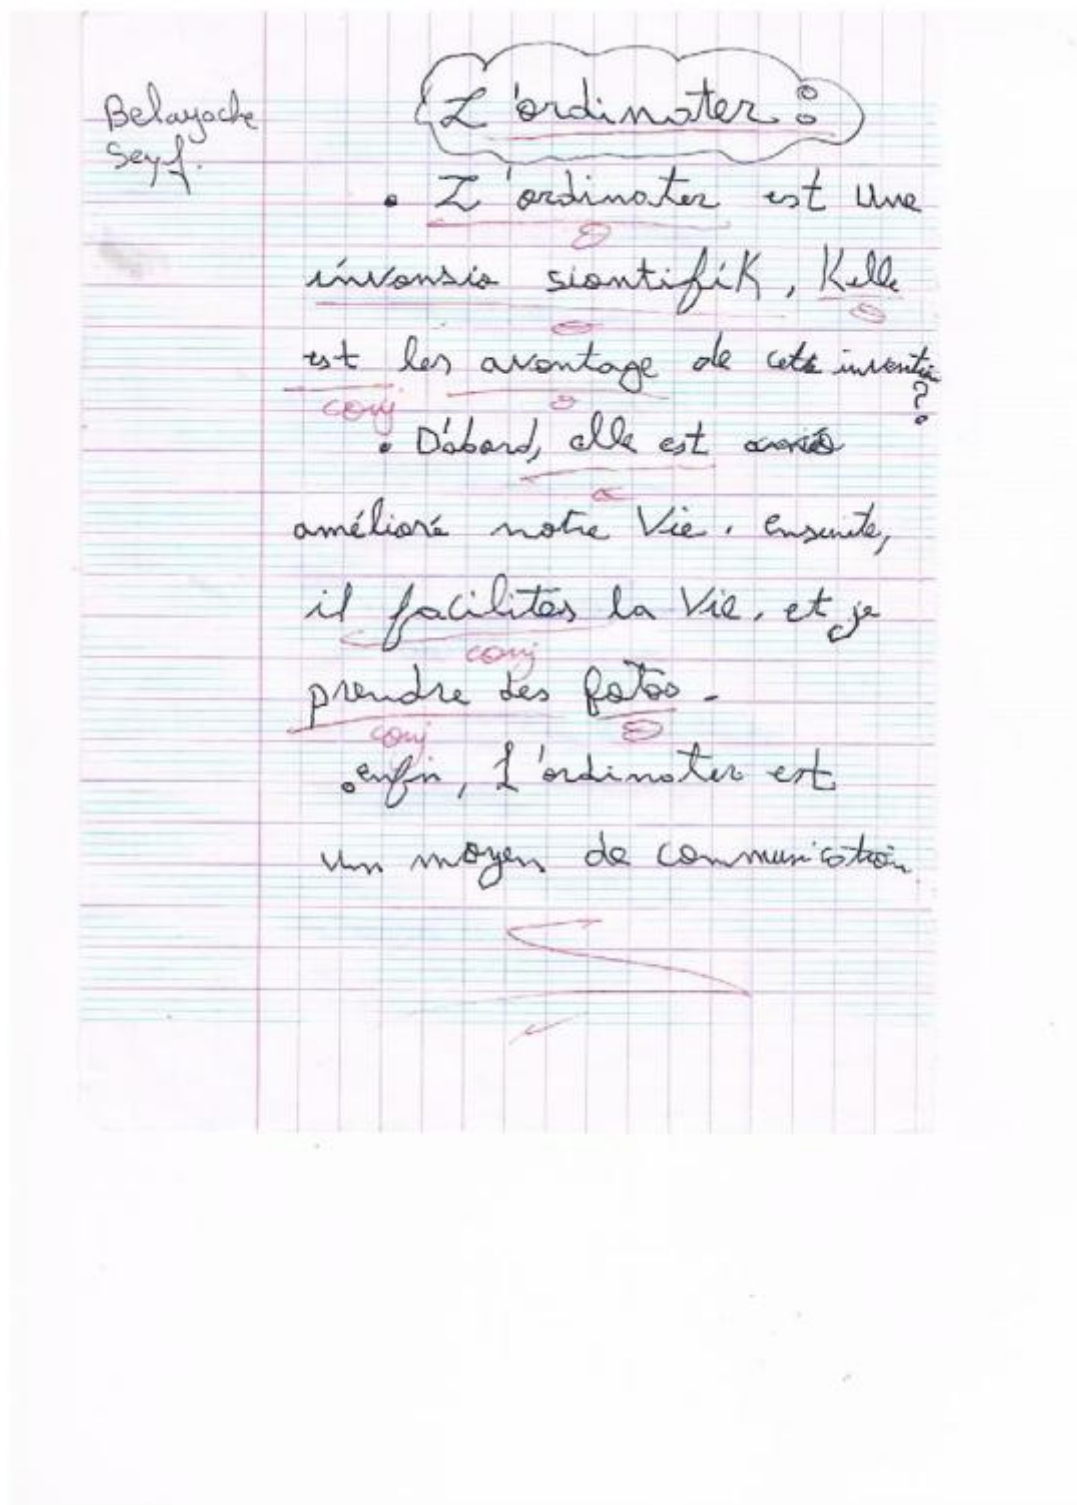 Belayoche
Seyf.
L'ordinater :
• L'ordinater est une
invonsio siontifik, Kelle
est les avontage de cette invention
?
conj
• D'abord, elle est
amélioré notre Vie. ensuite,
il facilites la Vie, et je
conj
prendre des fotos.
conj
• enfin, L'ordinater est
un moyen de communication.